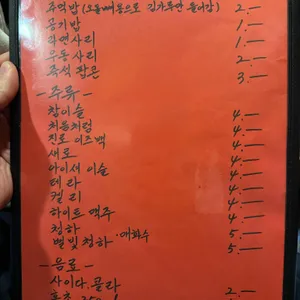 주먹밥 (오돌뼈용으로 김가루만 들어감) 2.—
공기밥 1.—
라면사리 1.—
우동사리 2.—
즉석 짬은 3.—
- 주류 -
참이슬 4.—
처음처럼 4.—
진로 이즈백 4.—
새로 4.—
아이셔 이슬 4.—
테라 4.—
켈리 4.—
하이트 맥주 4.—
청하 5.—
별빛청하 ·매화수 5.—
- 음료 -
사이다. 콜라 2.—